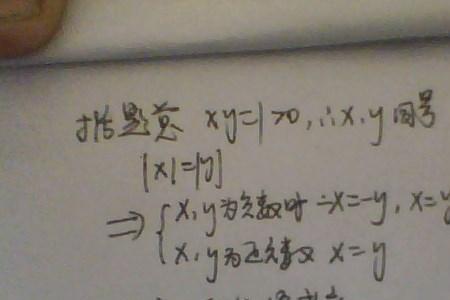 据题意 xy=1>0,∴x、y同号
|x|=|y|
⇒{x、y为负数时 -x=-y, x=y
x、y为正数 x=y